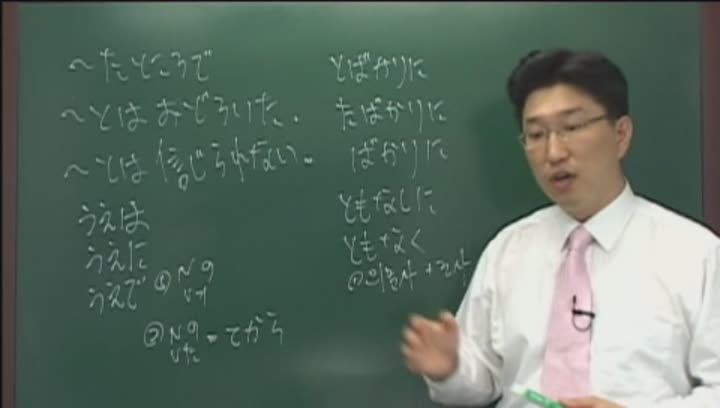 ～たところで
～とは おどろいた.
～とは 信じられない.
うえは
うえに
うえで ① Nの
Vる
② Nの
Vた = てから
とばかりに
たばかりに
ばかりに
ともなしに
ともなく
① 의문사 + 조사